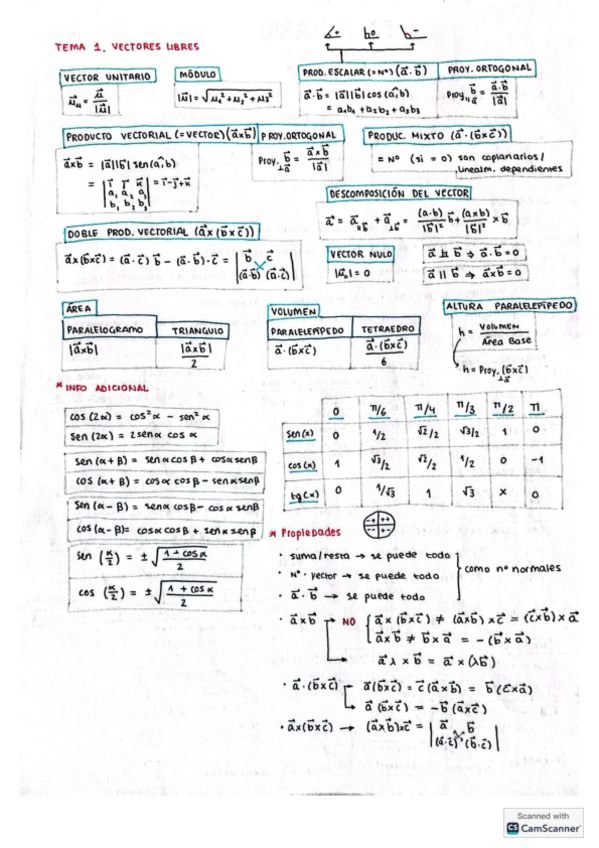 TEMA 1. VECTORES LIBRES
VECTOR UNITARIO
MÓDULO
|u⃗| = √u₁² + u₂² + u₃²
PROD. ESCALAR (= Nº) (a⃗·b⃗)
a⃗·b⃗ = |a⃗||b⃗| cos(a,b)
= a₁b₁ + a₂b₂ + a₃b₃
PROY. ORTOGONAL
Proy∥a⃗ b⃗ = a⃗·b⃗ / |a⃗|
PRODUCTO VECTORIAL (= VECTOR) (a⃗xb⃗)
a⃗xb⃗ = |a⃗||b⃗| sen(a,b)
= | i⃗ j⃗ k⃗ | = i⃗ - j⃗ + k⃗
a₁ a₂ a₃
b₁ b₂ b₃
PROY. ORTOGONAL
Proy.⊥a⃗ b⃗ = a⃗xb⃗ / |a⃗|
PRODUC. MIXTO (a⃗·(b⃗xc⃗))
= Nº (si = 0) son coplanarios/
linealm. dependientes
DESCOMPOSICIÓN DEL VECTOR
a⃗ = a⃗∥b⃗ + a⃗⊥b⃗ = (a·b)/|b⃗|² b⃗ + (axb)/|b⃗|² x b⃗
DOBLE PROD. VECTORIAL (a⃗x(b⃗xc⃗))
a⃗x(b⃗xc⃗) = (a⃗·c⃗) b⃗ - (a⃗·b⃗)·c⃗ = | b⃗ c⃗ |
(a⃗·b⃗) (a⃗·c⃗)
VECTOR NULO
|u⃗₀| = 0
a ⊥ b ⇒ a⃗·b⃗ = 0
a ∥ b ⇒ a⃗xb⃗ = 0
ÁREA
PARALELOGRAMO TRIANGULO
|a⃗xb⃗| |a⃗xb⃗| / 2
VOLUMEN
PARALELEPÍPEDO TETRAEDRO
a⃗·(b⃗xc⃗) a⃗·(b⃗xc⃗) / 6
ALTURA PARALEPÍPEDO
h = VOLUMEN / Área Base
h = Proy.⊥a⃗ (b⃗xc⃗)
* INFO ADICIONAL
cos (2α) = cos²α - sen²α
sen (2α) = 2 sen α cos α
sen (α + β) = sen α cos β + cos α sen β
cos (α + β) = cos α cos β - sen α sen β
sen (α - β) = sen α cos β - cos α sen β
cos (α - β) = cos α cos β + sen α sen β
sen (α/2) = ± √1 + cos α / 2
cos (α/2) = ± √1 + cos α / 2
0 π/6 π/4 π/3 π/2 π
sen(x) 0 1/2 √2/2 √3/2 1 0
cos(x) 1 √3/2 √2/2 1/2 0 -1
tg(x) 0 1/√3 1 √3 x 0
* Propiedades
· suma/resta → se puede todo
· Nº · vector → se puede todo
· a⃗·b⃗ → se puede todo
como nº normales
· a⃗xb⃗ → NO { a⃗x(b⃗xc⃗) ≠ (a⃗xb⃗)xc⃗ = (c⃗xb⃗)xa⃗
a⃗xb⃗ ≠ b⃗xa⃗ = -(b⃗xa⃗)
a⃗λ x b⃗ = a⃗x(λb⃗)
· a⃗·(b⃗xc⃗) → a⃗(b⃗xc⃗) = c⃗(a⃗xb⃗) = b⃗(c⃗xa⃗)
a⃗(b⃗xc⃗) = -b⃗(a⃗xc⃗)
· a⃗x(b⃗xc⃗) → (a⃗xb⃗)xc⃗ = | a⃗ b⃗ |
(a⃗·c⃗) (b⃗·c⃗)
Scanned with
CS CamScanner